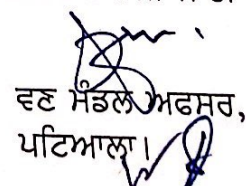 ਵਣ ਮੰਡਲ ਅਫਸਰ,
ਪਟਿਆਲਾ।